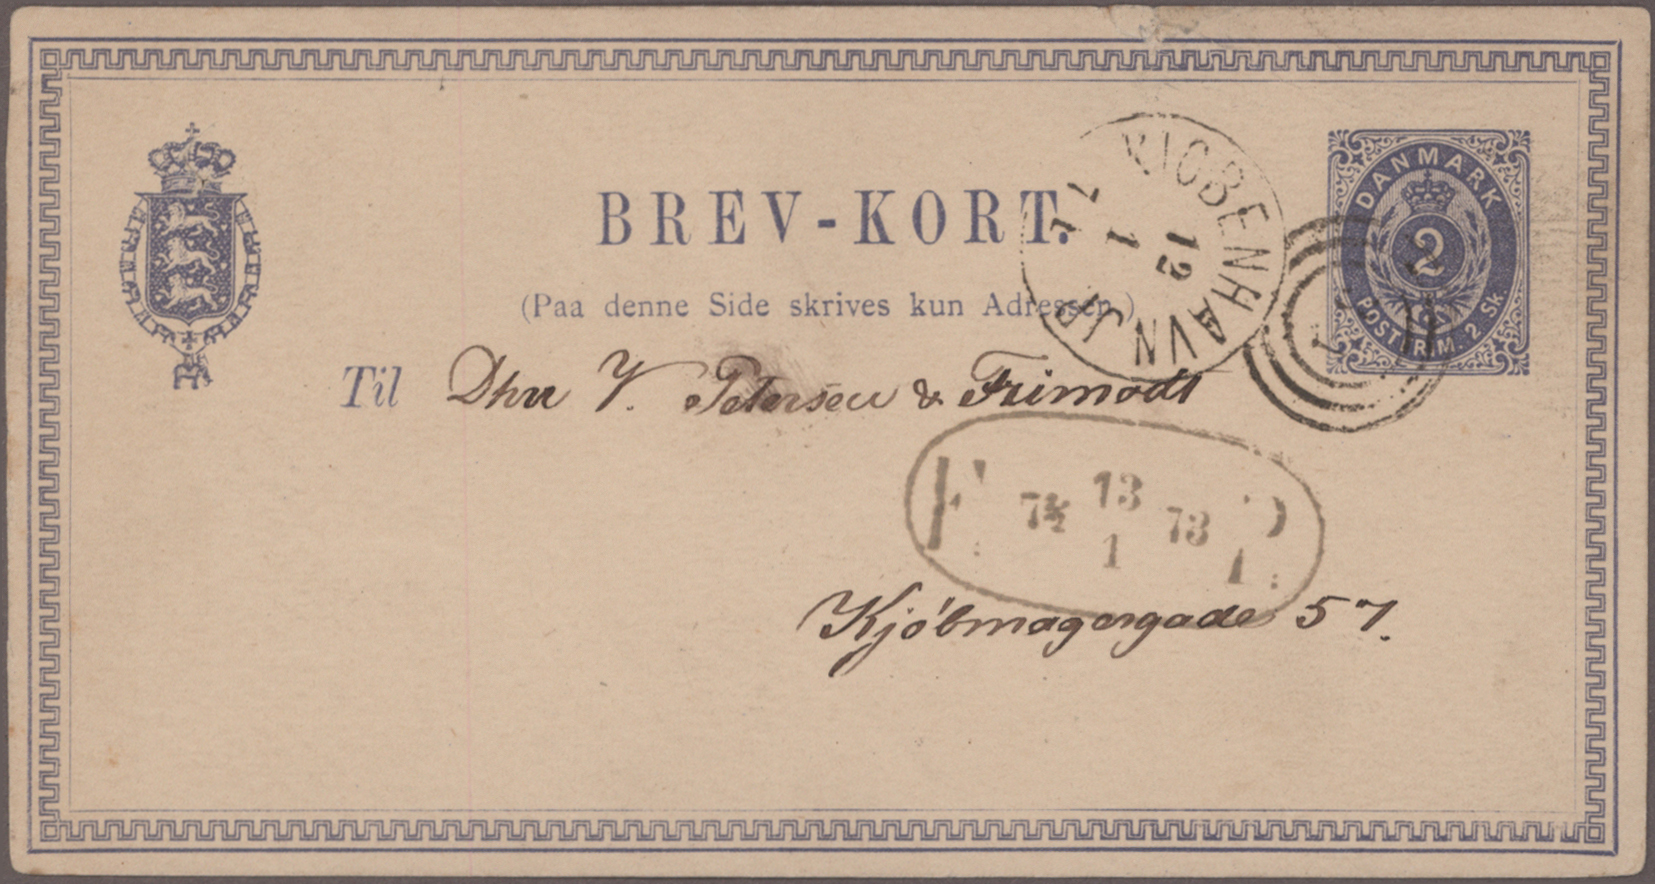 BREV-KORT.
(Paa denne Side skrives kun Adressen.)
Til Dhrr V. Petersen & Frimodt
Kjøbmagergade 57.
DANMARK
2
POSTFRIM. 2 Sk
KIØBENHAVN JP
12
1
7½ 13 73
1